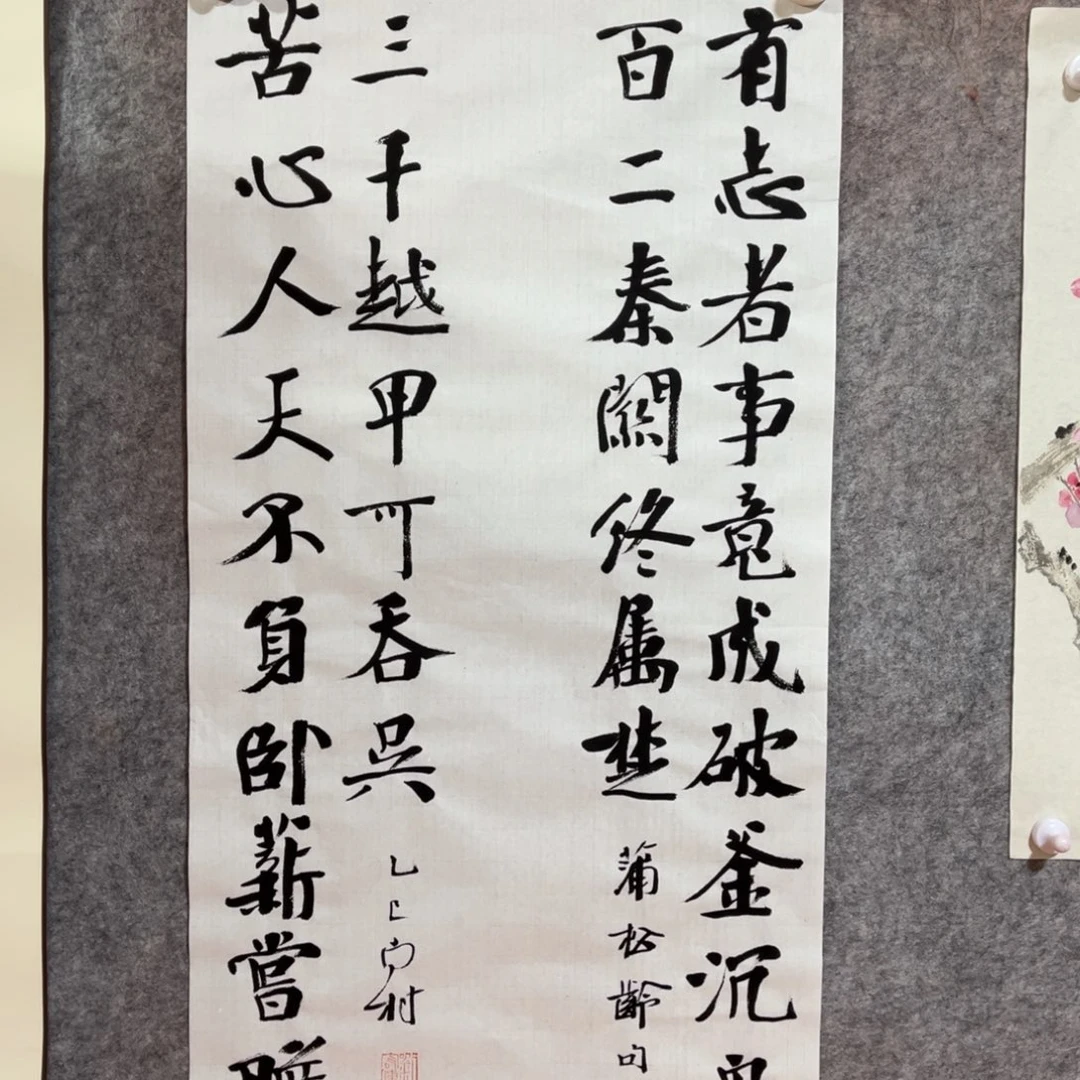 有志者事竟成破釜沉
百二秦關终属楚
蒲松齡句
苦心人天不負卧薪嘗
三千越甲可吞吴
乙巳